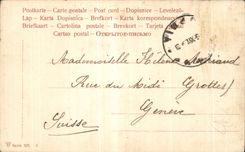 Postkarte - Carte postale - Post card - Dopisnice - Levelező-
Lap - Karta Dopisnica - Brefkort - Karta korespondencyjna
Briefkaart - Cartolina postale - Brevkort - Tarjeta
Cartao postal - ОТКРЫТОЕ ПИСЬМО
Mademoiselle Helene
Rue du Midi (Grottes)
Genève
Suisse
Serie